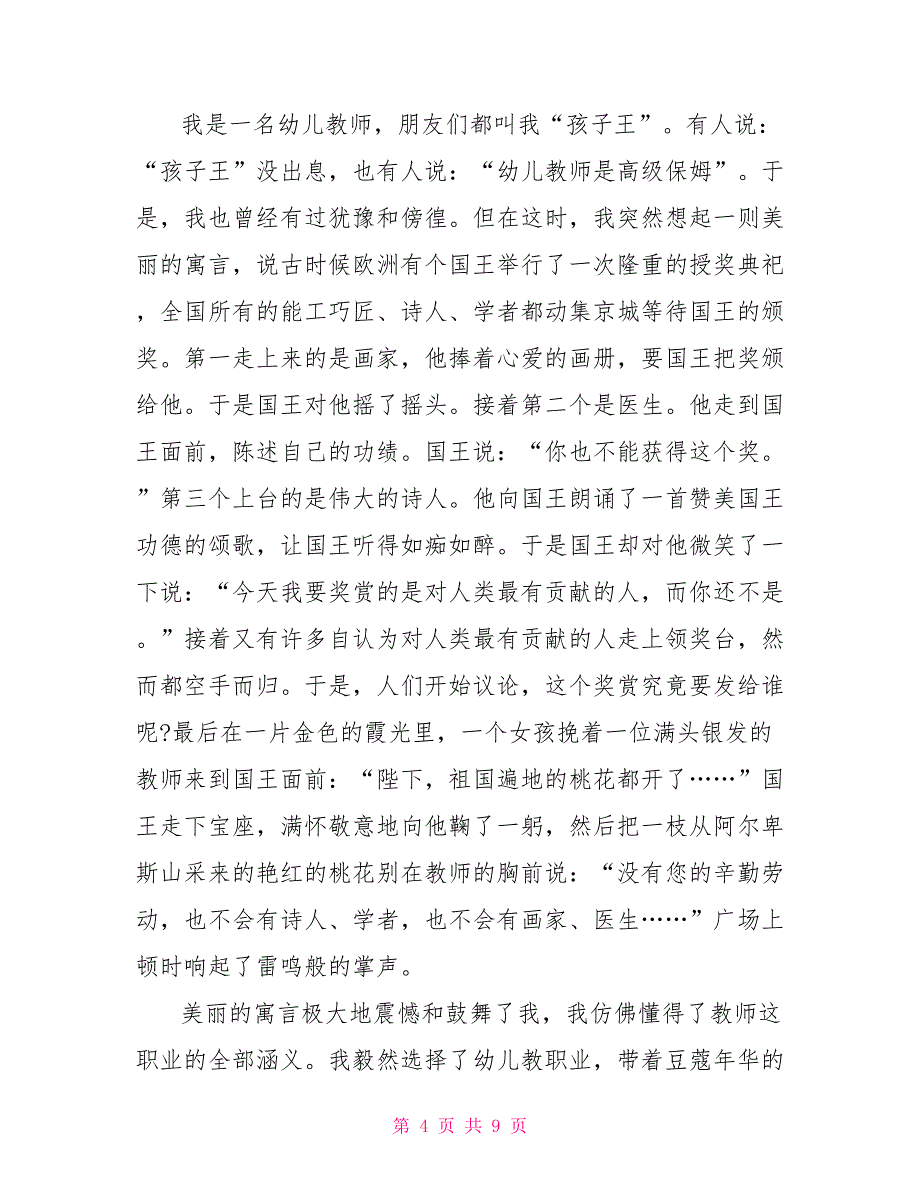 我是一名幼儿教师，朋友们都叫我“孩子王”。有人说：
“孩子王”没出息，也有人说：“幼儿教师是高级保姆”。于
是，我也曾经有过犹豫和傍徨。但在这时，我突然想起一则美
丽的寓言，说古时候欧洲有个国王举行了一次隆重的授奖典祀
，全国所有的能工巧匠、诗人、学者都动集京城等待国王的颁
奖。第一走上来的是画家，他捧着心爱的画册，要国王把奖颁
给他。于是国王对他摇了摇头。接着第二个是医生。他走到国
王面前，陈述自己的功绩。国王说：“你也不能获得这个奖。
”第三个上台的是伟大的诗人。他向国王朗诵了一首赞美国王
功德的颂歌，让国王听得如痴如醉。于是国王却对他微笑了一
下说：“今天我要奖赏的是对人类最有贡献的人，而你还不是
。”接着又有许多自认为对人类最有贡献的人走上领奖台，然
而都空手而归。于是，人们开始议论，这个奖赏究竟要发给谁
呢?最后在一片金色的霞光里，一个女孩挽着一位满头银发的
教师来到国王面前：“陛下，祖国遍地的桃花都开了……”国
王走下宝座，满怀敬意地向他鞠了一躬，然后把一枝从阿尔卑
斯山采来的艳红的桃花别在教师的胸前说：“没有您的辛勤劳
动，也不会有诗人、学者，也不会有画家、医生……”广场上
顿时响起了雷鸣般的掌声。
美丽的寓言极大地震憾和鼓舞了我，我仿佛懂得了教师这
职业的全部涵义。我毅然选择了幼儿教职业，带着豆蔻年华的
第 4 页 共 9 页